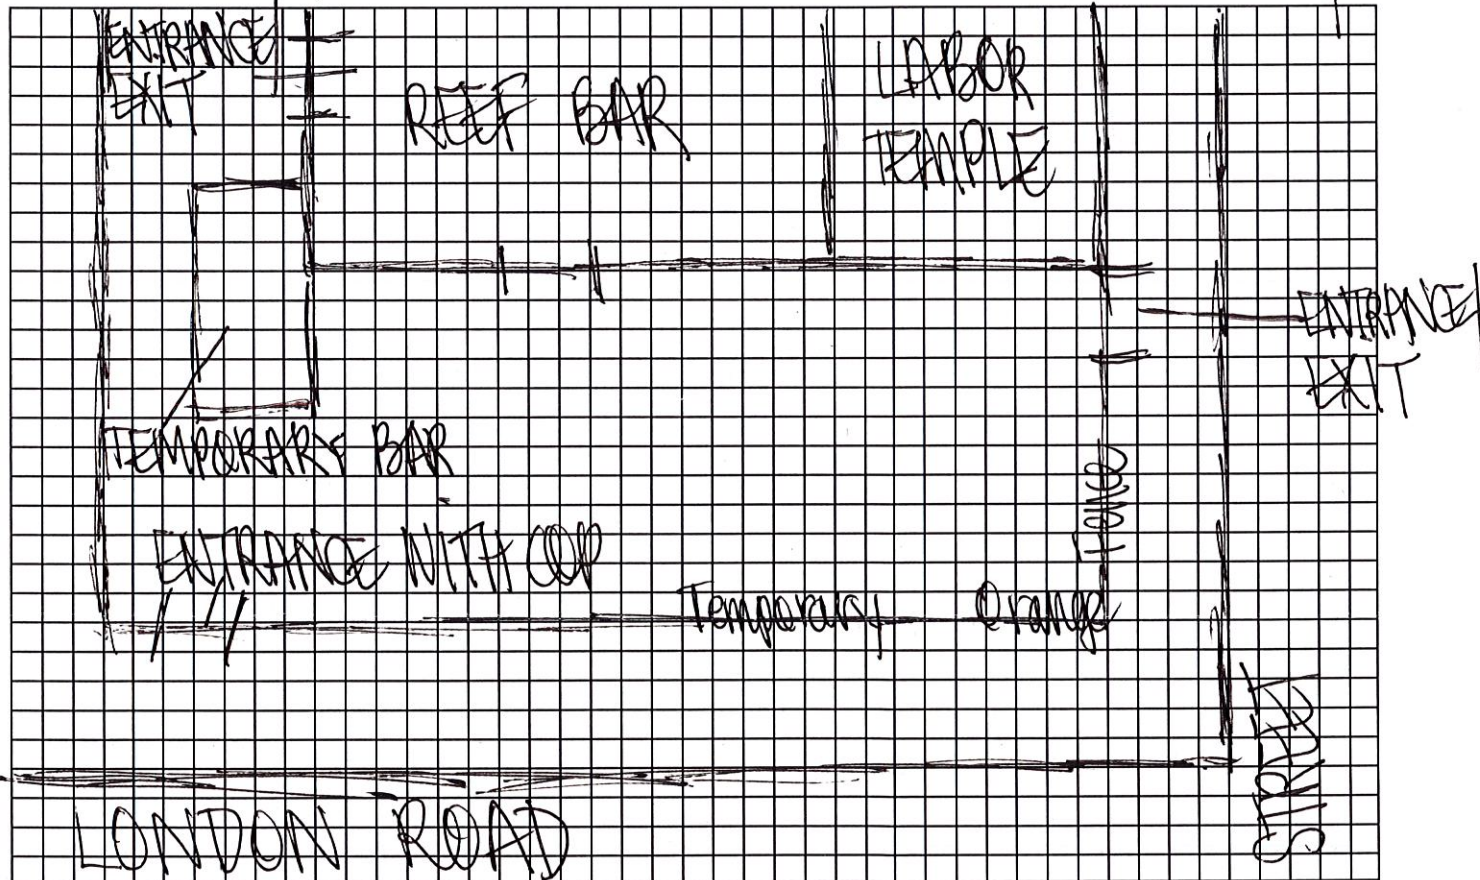 ENTRANCE/
EXIT
REEF BAR
LABOR
TEMPLE
ENTRANCE/
EXIT
TEMPORARY BAR
ENTRANCE WITH COP
Temporary Orange
Fence
LONDON ROAD
STREET